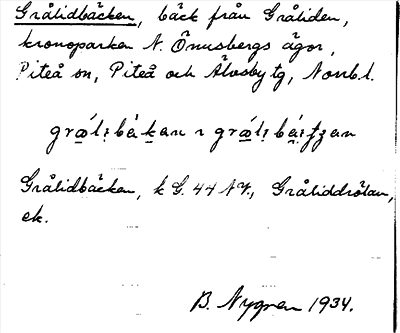 Grålidbäcken, bäck från Gråliden,
kronoparken N. Önusbergs ägor,
Piteå sn, Piteå och Älvsby tg, Norrb.l.
Grålidbäcken, k G. 44 NV., Gråliddrötan,
ek.
B. Nygren 1934.